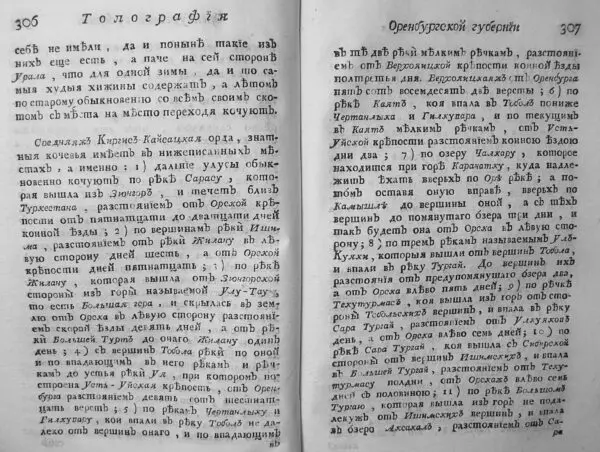 306 Топографїи
себѣ не имѣли, да и понынѣ такїе изъ
нихъ еще есть, а паче на сей сторонѣ
Урала, что для одной зимы, да и то са-
мыя худыя хижины содержатъ, а лѣтомъ
по старому обыкновенїю со всѣмъ своимъ ско-
томъ съ мѣста на мѣсто переходя кочуютъ.
Киргис-Кайсацкая орда, знат-
ныя кочевья имѣетъ въ нижеписанныхъ мѣ-
стахъ, а именно: 1) дальнїе улусы обык-
новенно кочуютъ по рѣкѣ Сарасу, кото-
рая вышла изъ Зюнгорїи, и течетъ близъ
Туркестана, разстоянїемъ отъ Орской крѣ-
пости отъ пятнатцати до дватцати дней
конной ѣзды; 2) по вершинамъ рѣки Иши-
ма, разстоянїемъ отъ рѣки Жилану въ лѣ-
вую сторону дней шесть, а отъ Орской
крѣпости дней пятнатцать; 3) по рѣкѣ
Жилану, которая вышла отъ Зюнгорской
стороны изъ горы называемой Улу-Тау,
то есть Большая гора, и скрылась въ зем-
лю отъ Орска въ лѣвую сторону разстоянї-
емъ скорой ѣзды десять дней, а отъ рѣ-
ки Большей Туртъ до онаго Жилану одинъ
день; 4) съ вершинъ Тобола рѣки по оной
и по впадающимъ въ него рѣкамъ и рѣч-
камъ до устья рѣки Уя, при которомъ по-
строена Усть-Уйская крѣпость, отъ Орен-
бурга разстоянїемъ девять сотъ шестнат-
цать верстъ; 5) по рѣкамъ Чертанлыку и
Гилкуару, кои впали въ рѣку Тоболъ не да-
лехо отъ вершинъ онаго, и по впадающимъ
въ
Оренбургской губернїи 307
въ тѣ двѣ рѣки мѣлкимъ рѣчкамъ, разстоянї-
емъ отъ Верхояицкой крѣпости конной ѣзды
полтретья дня. Верхояицкаяжъ отъ Оренбурга
пять сотъ восемдесятъ двѣ версты; 6) по
рѣкѣ Каятъ, коя впала въ Тоболъ пониже
Чертанлыка и Гилкуара, и по текущимъ
въ Каятъ мѣлкимъ рѣчкамъ, отъ Усть-
Уйской крѣпости разстоянїемъ конною ѣздою
дни два; 7) по озеру Чалкару, которое
находится при горѣ Карачатку, куда надле-
житъ ѣхать вверьхъ по Орѣ рѣкѣ; а по-
томъ оставя оную вправѣ, вверьхъ по
Камышлѣ до вершины оной, а съ тѣхъ
вершинъ до помянутаго озера три дни, и
такъ будетъ она отъ Орска въ лѣвую сто-
рону; 8) по тремъ рѣкамъ называемымъ Улъ-
которыя вышли отъ вершинъ Тобола,
и впали въ рѣку Тургай. До вершинъ ихъ
разстоянїя отъ предупомянушаго озера два,
а отъ Орска влѣво пять дней; 9) по рѣчкѣ
коя вышла изъ горъ отъ сто-
роны Тобольскихъ вершинъ, и впала въ рѣку
Сара Тургай, разстоянїемъ отъ
день, а отъ Орска влѣво семь дней; 10) по
рѣкѣ Сара Тургай, коя вышла съ Сибирской
стороны отъ вершинъ Ишимскихъ, и впала
въ Большой Тургай, разстоянїемъ отъ Теку-
турмасу полдни, отъ Орскажъ влѣво семь
дней съ половиною; 11) по рѣкѣ Большомъ
Тургаю, которая вышла изъ горъ не пода-
лекужъ отъ Ишимскихъ вершинъ, и впала
въ озеро Аксакалъ, разстоянїемъ отъ Са-
ра